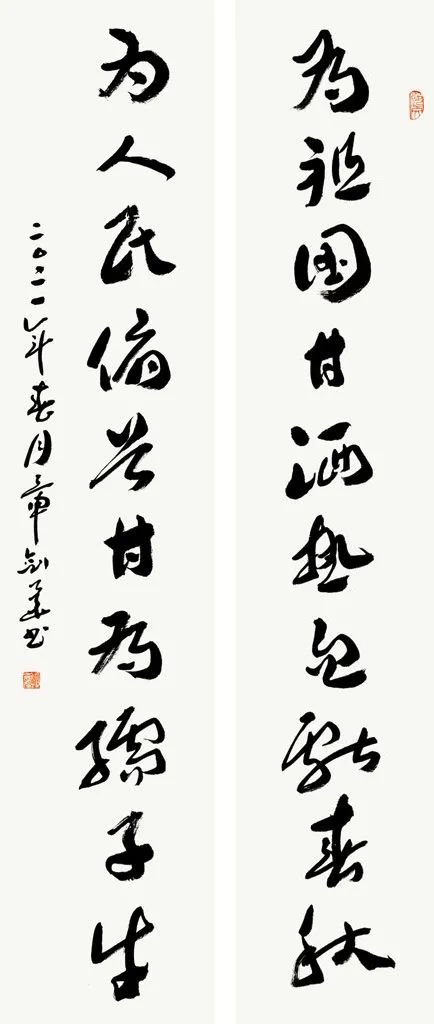 为祖国甘洒热血献春秋
为人民俯首甘为孺子牛
二〇二一年春月章剑华书